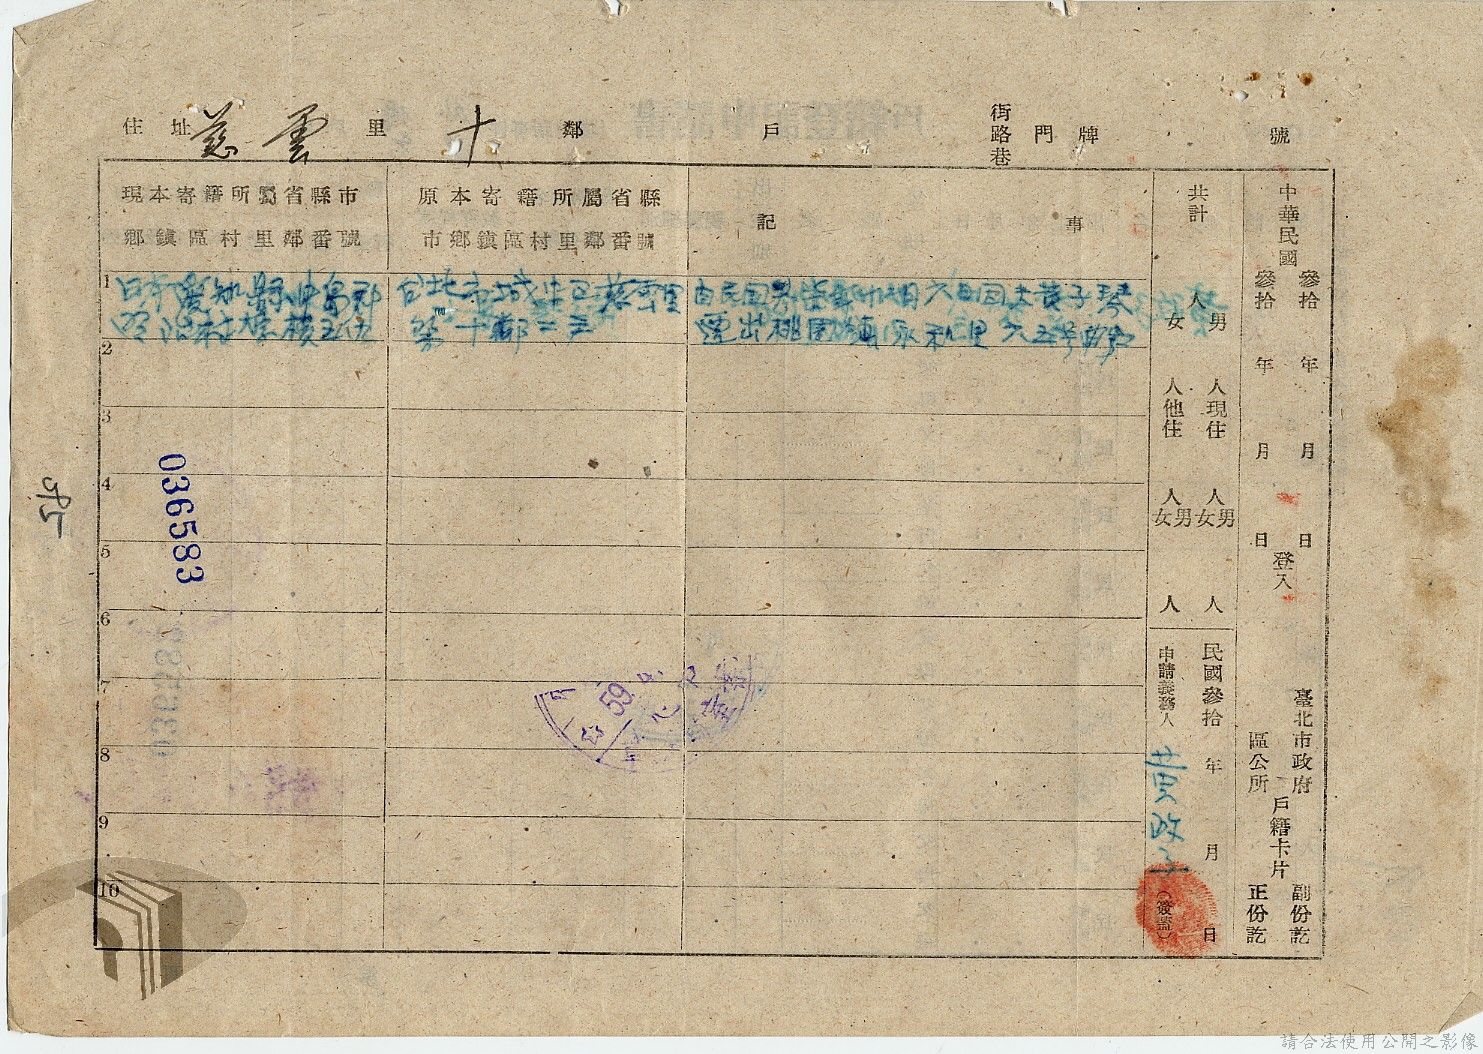 住址 慈雲 里 十 鄰 戶 街路巷 門牌 號
現本寄籍所屬省縣市
鄉鎮區村里鄰番號
原本寄籍所屬省縣
市鄉鎮區村里鄰番號
記 事
1
愛知縣
台北市城中區慈雲里
第十鄰二三
遷出桃園鎮永和里
2
3
4
5
6
7
8
9
10
共計
人 男
女
人現住
人他住
人 男女
人 男女
人
人
民國參拾 年 月 日
申請義務人 黃政子 (簽蓋)
中華民國
參拾 年 月 日
參拾 年 月 日
登入
臺北市政府
區公所
戶籍卡片
副份訖
正份訖
036583
59
請合法使用公開之影像